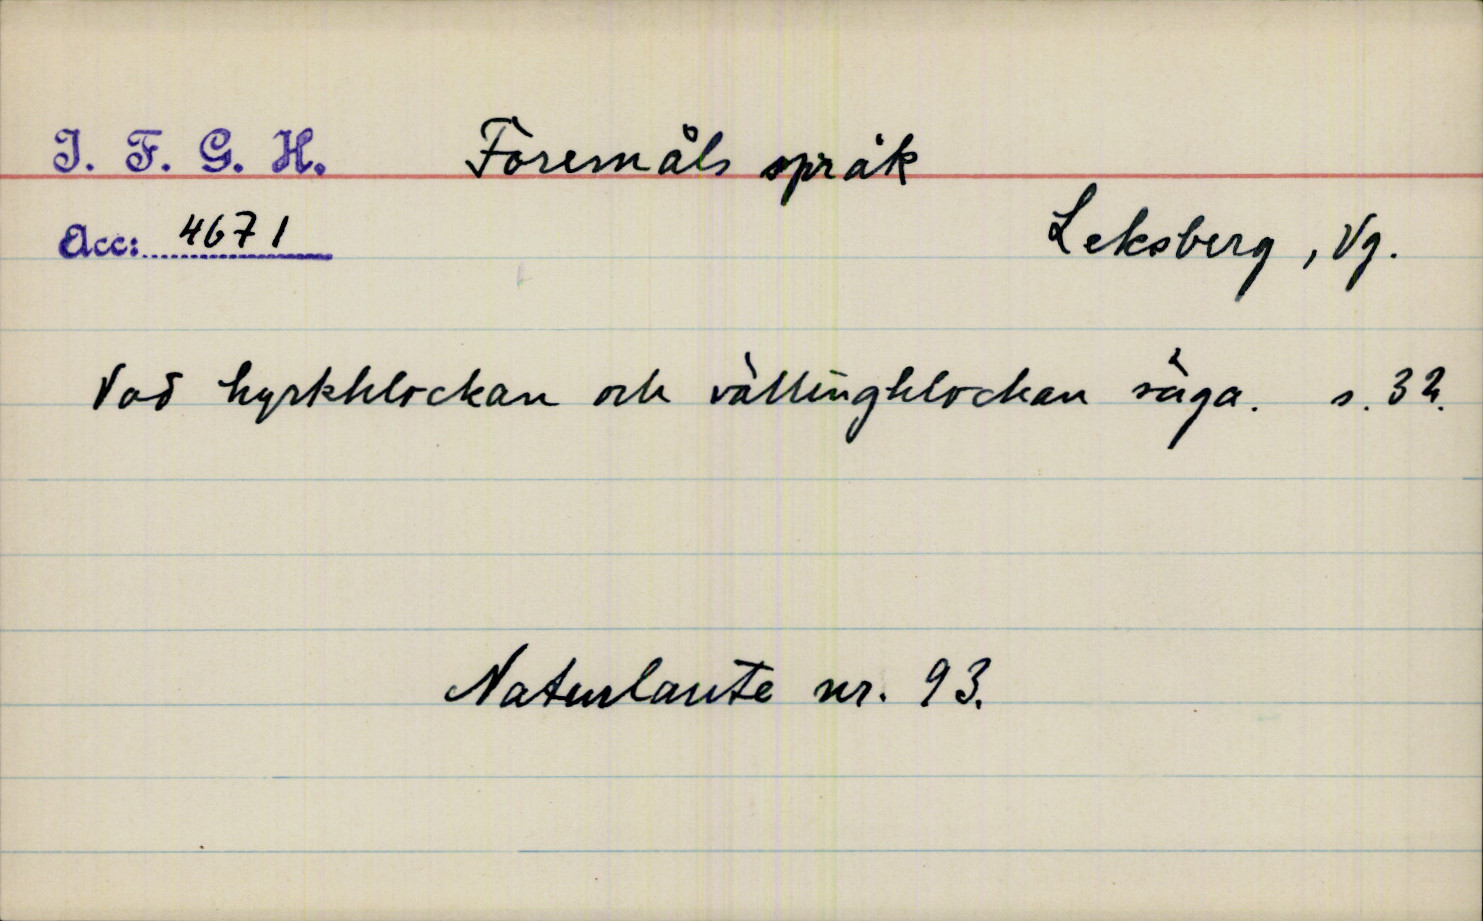 I. F. G. H. Föremåls språk
Acc: 4671 Leksberg, Vg.
Vad kyrkklockan och vällingklockan säga. s. 32.
Naturlaute nr. 93.